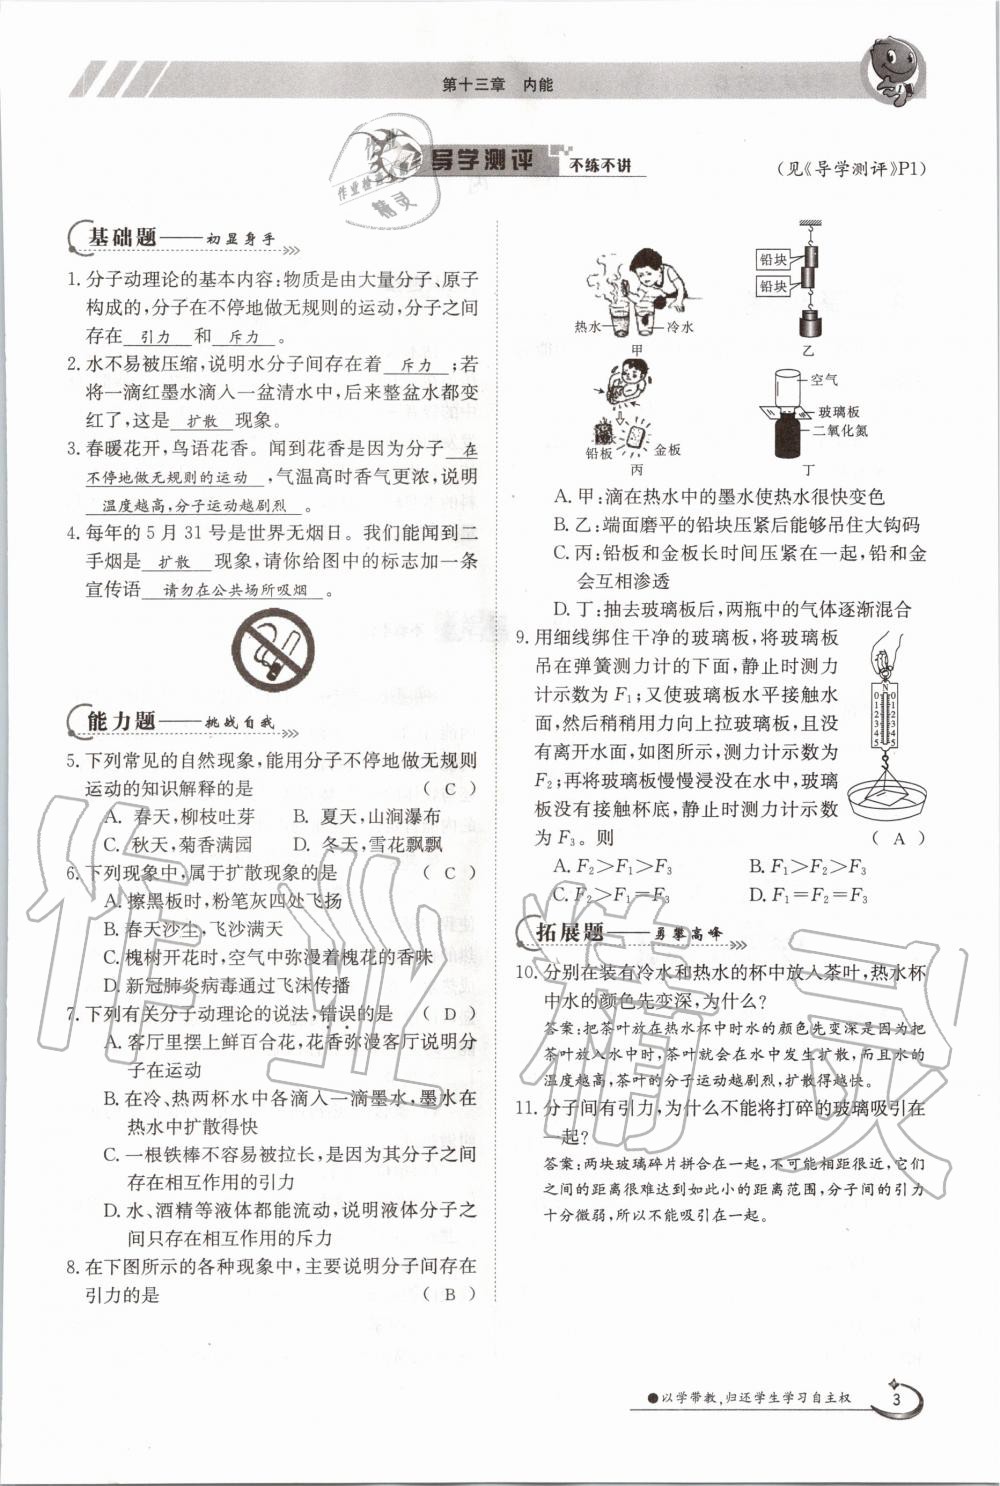 第十三章 内能
导学测评 不练不讲
(见《导学测评》P1)
基础题——初显身手
1. 分子动理论的基本内容:物质是由大量分子、原子
构成的,分子在不停地做无规则的运动,分子之间
存在 引力 和 斥力 。
2. 水不易被压缩,说明水分子间存在着 斥力 ;若
将一滴红墨水滴入一盆清水中,后来整盆水都变
红了,这是 扩散 现象。
3. 春暖花开,鸟语花香。闻到花香是因为分子 在
不停地做无规则的运动 ,气温高时香气更浓,说明
温度越高,分子运动越剧烈 。
4. 每年的 5 月 31 号是世界无烟日。我们能闻到二
手烟是 扩散 现象,请你给图中的标志加一条
宣传语 请勿在公共场所吸烟 。
能力题——挑战自我
5. 下列常见的自然现象,能用分子不停地做无规则
运动的知识解释的是 ( C )
A. 春天,柳枝吐芽 B. 夏天,山涧瀑布
C. 秋天,菊香满园 D. 冬天,雪花飘飘
6. 下列现象中,属于扩散现象的是 ( C )
A. 擦黑板时,粉笔灰四处飞扬
B. 春天沙尘,飞沙满天
C. 槐树开花时,空气中弥漫着槐花的香味
D. 新冠肺炎病毒通过飞沫传播
7. 下列有关分子动理论的说法,错误的是 ( D )
A. 客厅里摆上鲜百合花,花香弥漫客厅说明分
子在运动
B. 在冷、热两杯水中各滴入一滴墨水,墨水在
热水中扩散得快
C. 一根铁棒不容易被拉长,是因为其分子之间
存在相互作用的引力
D. 水、酒精等液体都能流动,说明液体分子之
间只存在相互作用的斥力
8. 在下图所示的各种现象中,主要说明分子间存在
引力的是 ( B )
热水 冷水
甲
铅块
铅块
乙
铅板 金板
丙
空气
玻璃板
二氧化氮
丁
A. 甲:滴在热水中的墨水使热水很快变色
B. 乙:端面磨平的铅块压紧后能够吊住大钩码
C. 丙:铅板和金板长时间压紧在一起,铅和金
会互相渗透
D. 丁:抽去玻璃板后,两瓶中的气体逐渐混合
9. 用细线绑住干净的玻璃板,将玻璃板
吊在弹簧测力计的下面,静止时测力
计示数为 F₁;又使玻璃板水平接触水
面,然后稍稍用力向上拉玻璃板,且没
有离开水面,如图所示,测力计示数为
F₂;再将玻璃板慢慢浸没在水中,玻璃
板没有接触杯底,静止时测力计示数
为 F₃。则 ( A )
A. F₂>F₁>F₃ B. F₁>F₂>F₃
C. F₂>F₁=F₃ D. F₁=F₂=F₃
拓展题——勇攀高峰
10. 分别在装有冷水和热水的杯中放入茶叶,热水杯
中水的颜色先变深,为什么?
答案:把茶叶放在热水杯中时水的颜色先变深是因为把
茶叶放入水中时,茶叶就会在水中发生扩散,而且水的
温度越高,茶叶的分子运动越剧烈,扩散得越快。
11. 分子间有引力,为什么不能将打碎的玻璃吸引在
一起?
答案:两块玻璃碎片拼合在一起,不可能相距很近,它们
之间的距离很难达到如此小的距离范围,分子间的引力
十分微弱,所以不能吸引在一起。
●以学带教,归还学生学习自主权
3
作业精灵